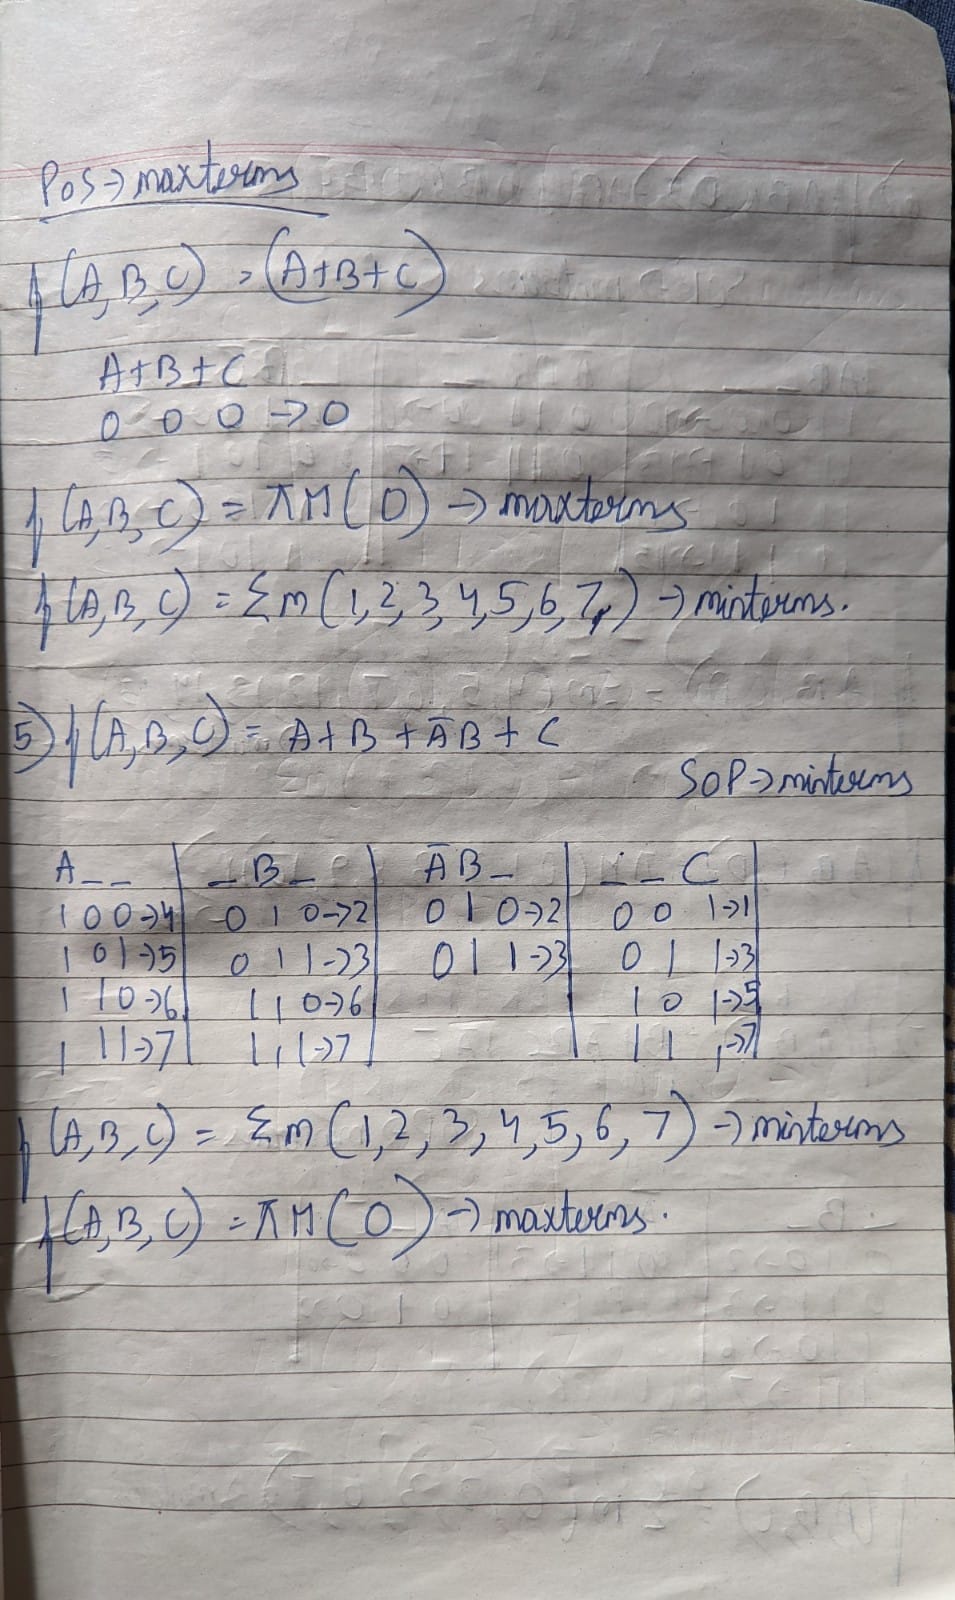 POS→maxterms
f(A,B,C) = (A+B+C)
A+B+C
0 0 0 → 0
f(A,B,C) = πM(0) → maxterms
f(A,B,C) = Σm(1,2,3,4,5,6,7) → minterms.
5) f(A,B,C) = A+B+ĀB+C
SOP→minterms
A_ _ | _B_ | ĀB_ | _ _C
100→4 | 010→2 | 010→2 | 001→1
101→5 | 011→3 | 011→3 | 011→3
110→6 | 110→6 | | 101→5
111→7 | 111→7 | | 111→7
f(A,B,C) = Σm(1,2,3,4,5,6,7) → minterms
f(A,B,C) = πM(0) → maxterms.